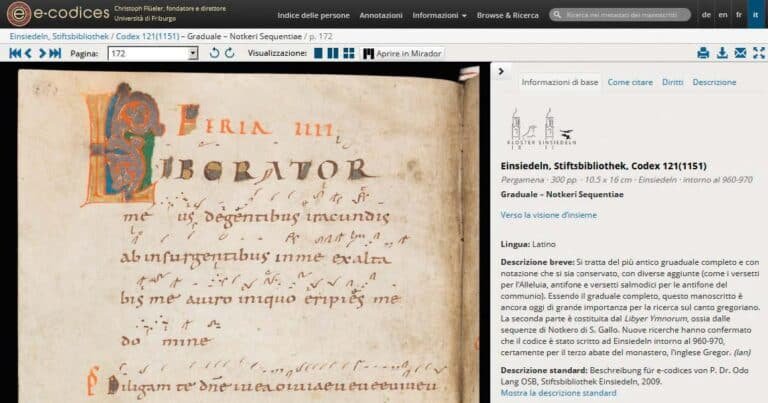 e-codices
Christoph Flüeler, fondatore e direttore
Università di Friburgo
Indice delle persone
Annotazioni
Informazioni
Browse & Ricerca
Ricerca nei metadati dei manoscritti
de
en
fr
it
Einsiedeln, Stiftsbibliothek / Codex 121(1151) – Graduale – Notkeri Sequentiae / p. 172
Pagina: 172
Visualizzazione:
Aprire in Mirador
FERIA IIII
LIBERATOR
me us degentibus iracundis
ab insurgentibus in me exalta
bis me a viro iniquo eripies me
do mine
Diligam te dne
Informazioni di base
Come citare
Diritti
Descrizione
KLOSTER EINSIEDELN
Einsiedeln, Stiftsbibliothek, Codex 121(1151)
Pergamena · 300 pp. · 10.5 x 16 cm · Einsiedeln · intorno al 960-970
Graduale – Notkeri Sequentiae
Verso la visione d'insieme
Lingua: Latino
Descrizione breve: Si tratta del più antico gruaduale completo e con
notazione che si sia conservato, con diverse aggiunte (come i versetti
per l'Alleluia, antifone e versetti salmodici per le antifone del
communio). Essendo il graduale completo, questo manoscritto è
ancora oggi di grande importanza per la ricerca sul canto gregoriano.
La seconda parte è costituita dal Libyer Ymnorum, ossia dalle
sequenze di Notkero di S. Gallo. Nuove ricerche hanno confermato
che il codice è stato scritto ad Einsiedeln intorno al 960-970,
certamente per il terzo abate del monastero, l'inglese Gregor. (lan)
Descrizione standard: Beschreibung für e-codices von P. Dr. Odo
Lang OSB, Stiftsbibliothek Einsiedeln, 2009.
Mostra la descrizione standard